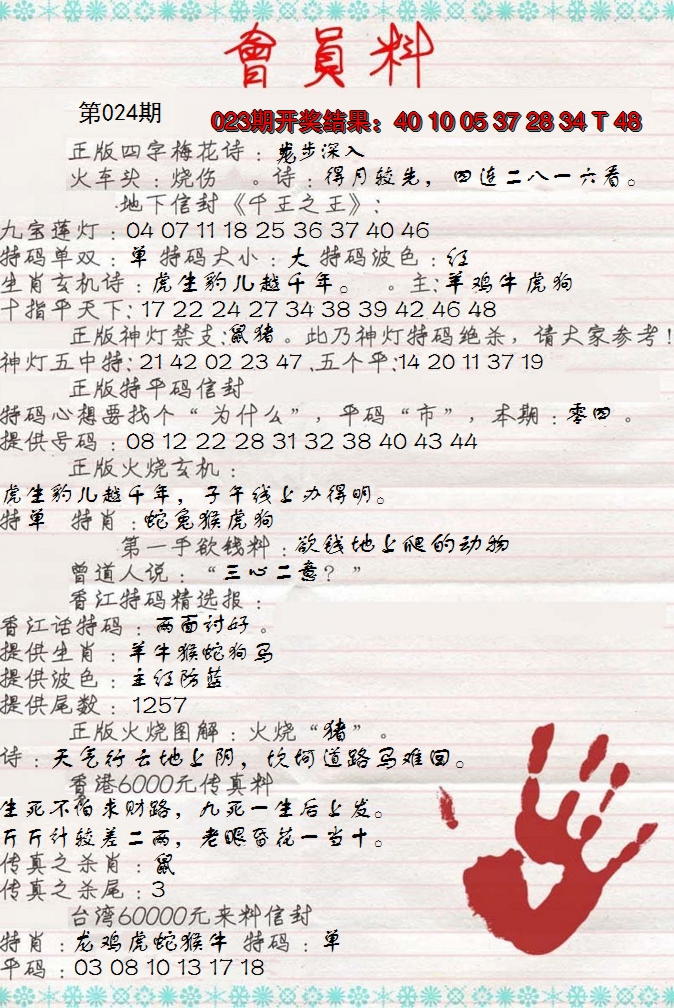 會員料
第024期
023期开奖结果：40 10 05 37 28 34 T 48
正版四字梅花诗：步步深入
火车头：烧伤 。诗：得月较先，四连二八一六看。
地下信封《千王之王》：
九宝莲灯：04 07 11 18 25 36 37 40 46
特码单双：单 特码大小：大 特码波色：红
生肖玄机诗：虎生豹儿越千年。 。主：羊鸡牛虎狗
十指平天下：17 22 24 27 34 38 39 42 46 48
正版神灯禁支：鼠猪。此乃神灯特码绝杀，请大家参考！
神灯五中特：21 42 02 23 47 .五个平：14 20 11 37 19
正版特平码信封
特码心想要找个“为什么”，平码“市”，本期：零四。
提供号码：08 12 22 28 31 32 38 40 43 44
正版火烧玄机：
虎生豹儿越千年，子午线上办得明。
特单 特肖：蛇兔猴虎狗
第一手欲钱料：欲钱地上爬的动物
曾道人说：“三心二意？”
香江特码精选报：
香江话特码：两面讨好。
提供生肖：羊牛猴蛇狗马
提供波色：主红防蓝
提供尾数：1257
正版火烧图解：火烧“猪”。
诗：天气行云地上阴，坎坷道路马难回。
香港6000元传真料
生死不怕求财路，九死一生后上发。
斤斤计较差二两，老眼昏花一当十。
传真之杀肖：鼠
传真之杀尾：3
台湾60000元来料信封
特肖：龙鸡虎蛇猴牛 特码：单
平码：03 08 10 13 17 18